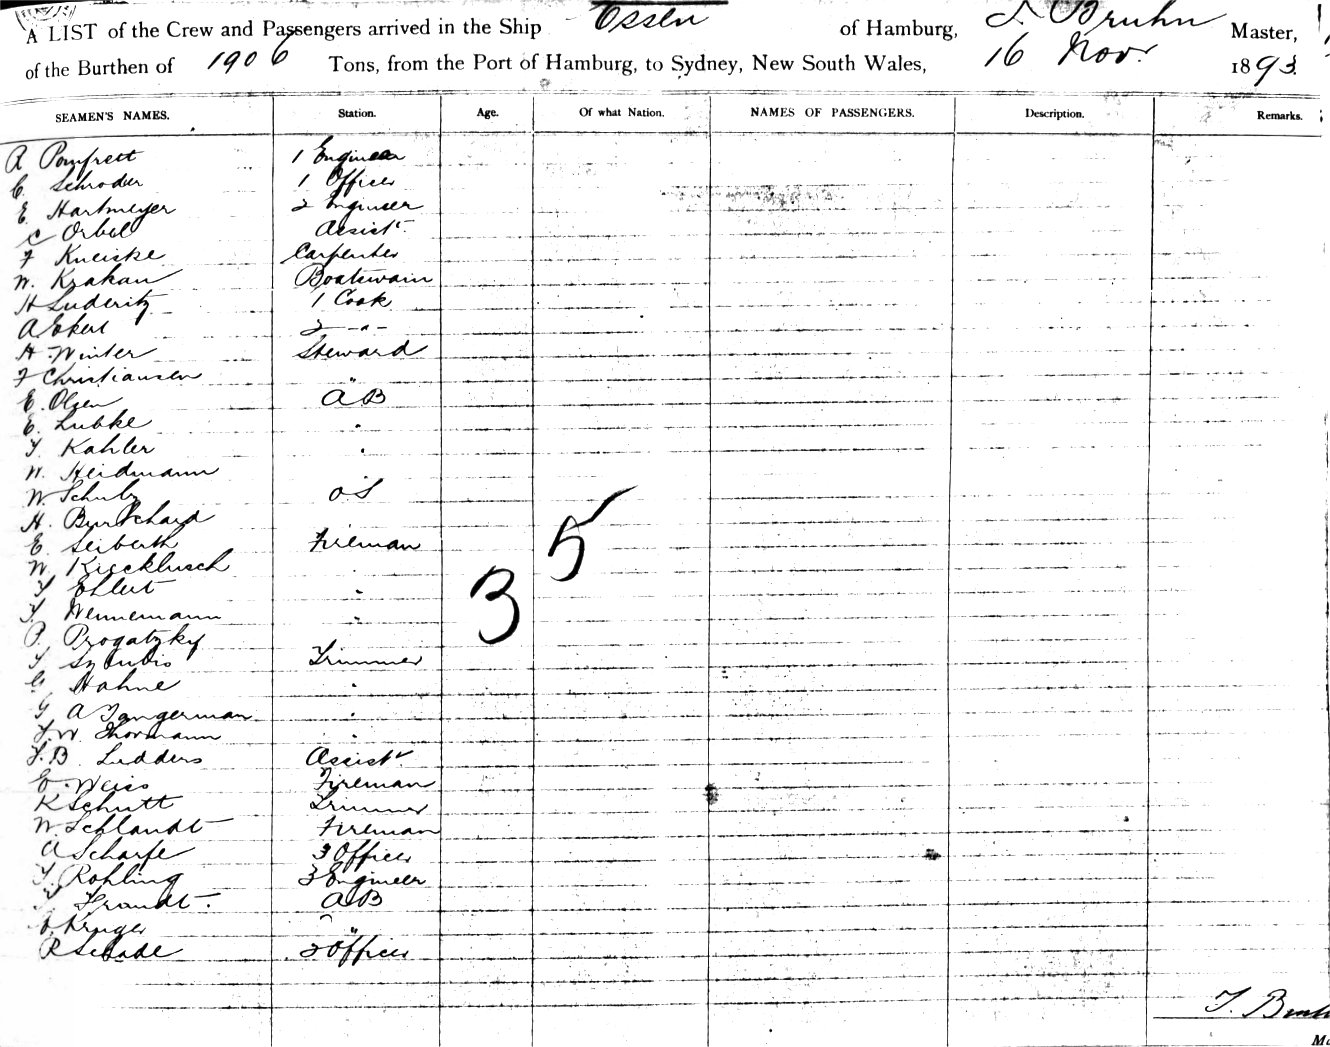 A LIST of the Crew and Passengers arrived in the Ship Essen of Hamburg, T. Bruhn Master,
of the Burthen of 1906 Tons, from the Port of Hamburg, to Sydney, New South Wales, 16 Nov. 1893.
SEAMEN'S NAMES. Station. Age. Of what Nation. NAMES OF PASSENGERS. Description. Remarks.
R Pomfrett 1 Engineer
C. Schroder 1 Officer
E. Hartmeyer 2 Engineer
C Orbel Assist
F Kneiske Carpenter
W. Krakau Boatswain
H Luderitz 1 Cook
A Ekert 2 - " -
H. Winter Steward
F Christiansen "
E. Olsen AB
E. Lubke "
F. Kahler "
W. Heidmann
W. Schulz OS
H. Burkchard
E. Seiberth Fireman
W. Kieckbusch
F Ehlert "
F. Wennemann "
P. Progatzky
F Trimmer
G. Hahne "
G A Tangerman "
F. W. Thormann "
F. B. Ludders Assist
E. Weiss Fireman
K Schutt Trimmer
W. Schlandt Fireman
A Scharfe 3 Officer
F. Rohling 3 Engineer
F. Frandt. AB
O. Kruger "
R Schade 2 Officer
35
T. Bruh
Ma